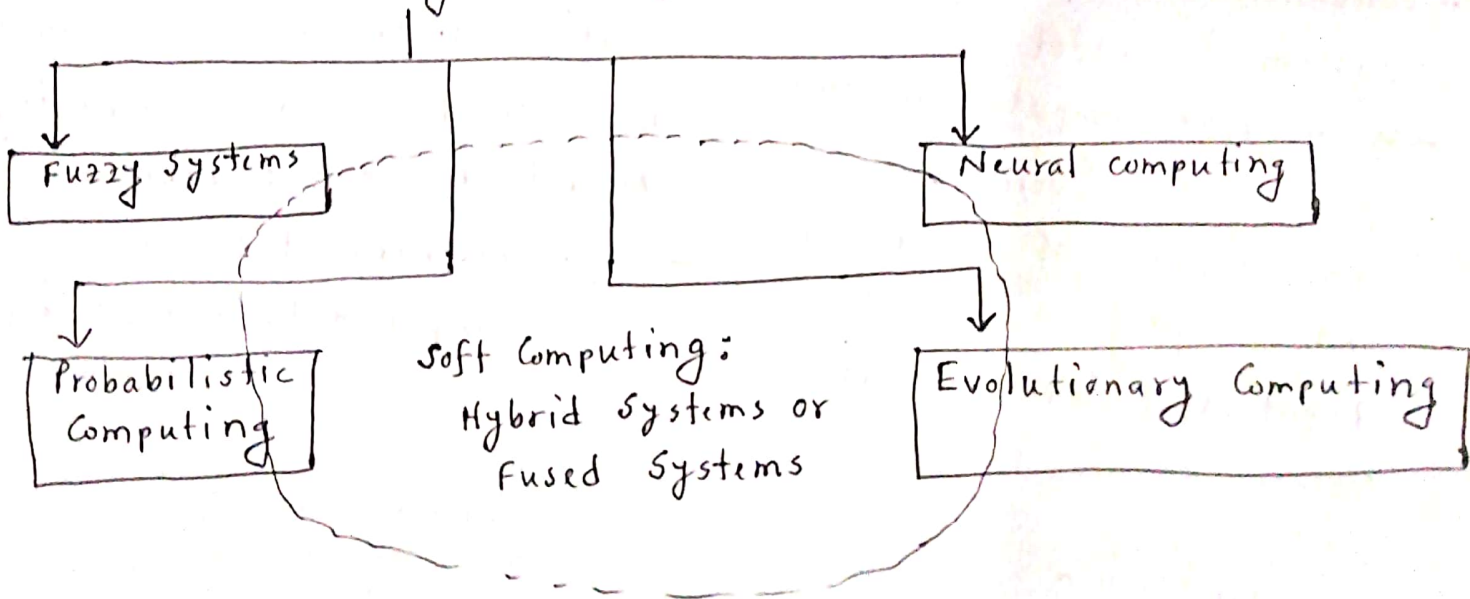 Fuzzy Systems
Neural computing
Probabilistic
Computing
Soft Computing:
Hybrid Systems or
Fused Systems
Evolutionary Computing